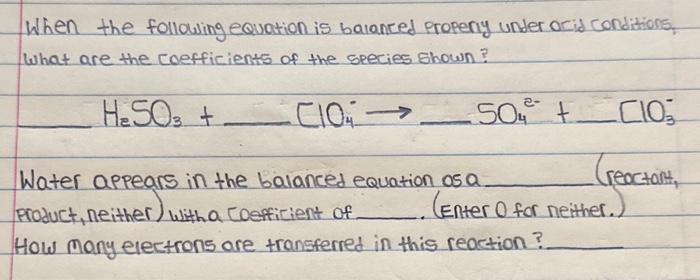 When the following equation is balanced properly under acid conditions,
what are the coefficients of the species shown?
____ H₂SO₃ + ____ ClO₄⁻ → ___ SO₄²⁻ + ___ ClO₃⁻
Water appears in the balanced equation as a ________ (reactant,
product, neither) with a coefficient of _____. (Enter 0 for neither.)
How many electrons are transferred in this reaction? ______